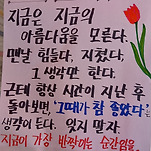 지금은 지금의
아름다움을 모른다.
맨날 힘들다, 지쳤다,
그 생각만 한다.
근데 항상 시간이 지난 후
돌아보면, '그때가 참 좋았다'는
생각이 든다. 잊지 말자.
지금이 가장 반짝이는 순간임을.